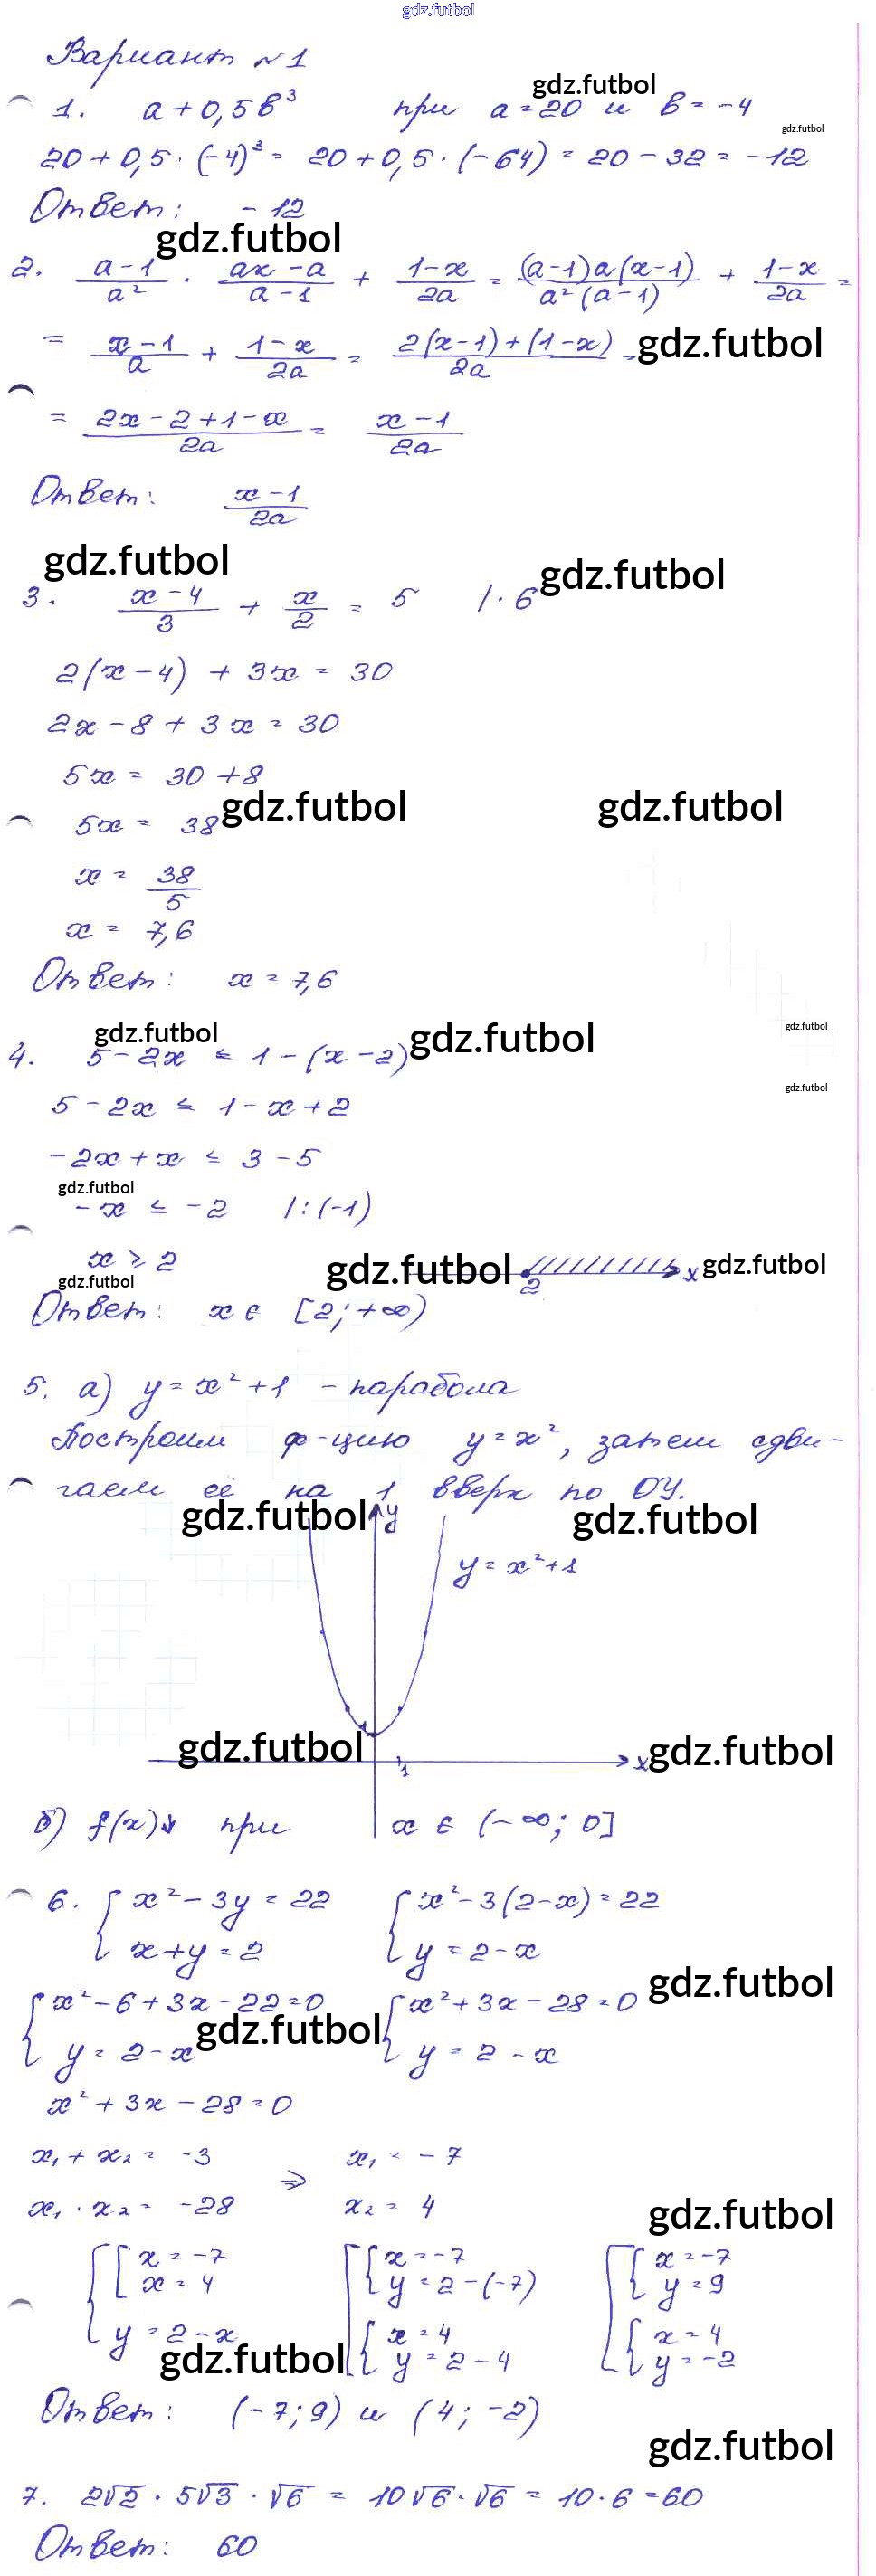 gdz.futbol
Вариант №1
gdz.futbol
1. a + 0,5b³ при a = 20 и b = -4
gdz.futbol
20 + 0,5 · (-4)³ = 20 + 0,5 · (-64) = 20 - 32 = -12
Ответ: -12
gdz.futbol
2. (a-1)/a² · (ax-a)/(a-1) + (1-x)/2a = (a-1)a(x-1)/a²(a-1) + (1-x)/2a =
= (x-1)/a + (1-x)/2a = (2(x-1)+(1-x))/2a = gdz.futbol
= (2x-2+1-x)/2a = (x-1)/2a
Ответ: (x-1)/2a
gdz.futbol gdz.futbol
3. (x-4)/3 + x/2 = 5 | · 6
2(x-4) + 3x = 30
2x - 8 + 3x = 30
5x = 30 + 8
5x = 38 gdz.futbol gdz.futbol
x = 38/5
x = 7,6
Ответ: x = 7,6
gdz.futbol gdz.futbol gdz.futbol
4. 5 - 2x ≤ 1 - (x - 2)
gdz.futbol
5 - 2x ≤ 1 - x + 2
-2x + x ≤ 3 - 5
gdz.futbol
-x ≤ -2 | : (-1)
x ≥ 2 gdz.futbol 2 x gdz.futbol
gdz.futbol
Ответ: x ∈ [2; +∞)
5. а) y = x² + 1 - парабола
Построим ф-цию y = x², затем сдви-
гаем её на 1 вверх по OY.
gdz.futbol y gdz.futbol
y = x² + 1
1
gdz.futbol x gdz.futbol
1
б) f(x)↓ при x ∈ (-∞; 0]
6. { x² - 3y = 22 { x² - 3(2-x) = 22
x + y = 2 y = 2 - x
gdz.futbol
{ x² - 6 + 3x - 22 = 0 { x² + 3x - 28 = 0
gdz.futbol
y = 2 - x y = 2 - x
x² + 3x - 28 = 0
x₁ + x₂ = -3 ⇒ x₁ = -7
x₁ · x₂ = -28 x₂ = 4
gdz.futbol
{ [ x = -7 [ { x = -7 [ { x = -7
x = 4 y = 2 - (-7) y = 9
y = 2 - x { x = 4 { x = 4
gdz.futbol y = 2 - 4 y = -2
Ответ: (-7; 9) и (4; -2)
gdz.futbol
7. 2√2 · 5√3 · √6 = 10√6 · √6 = 10 · 6 = 60
Ответ: 60